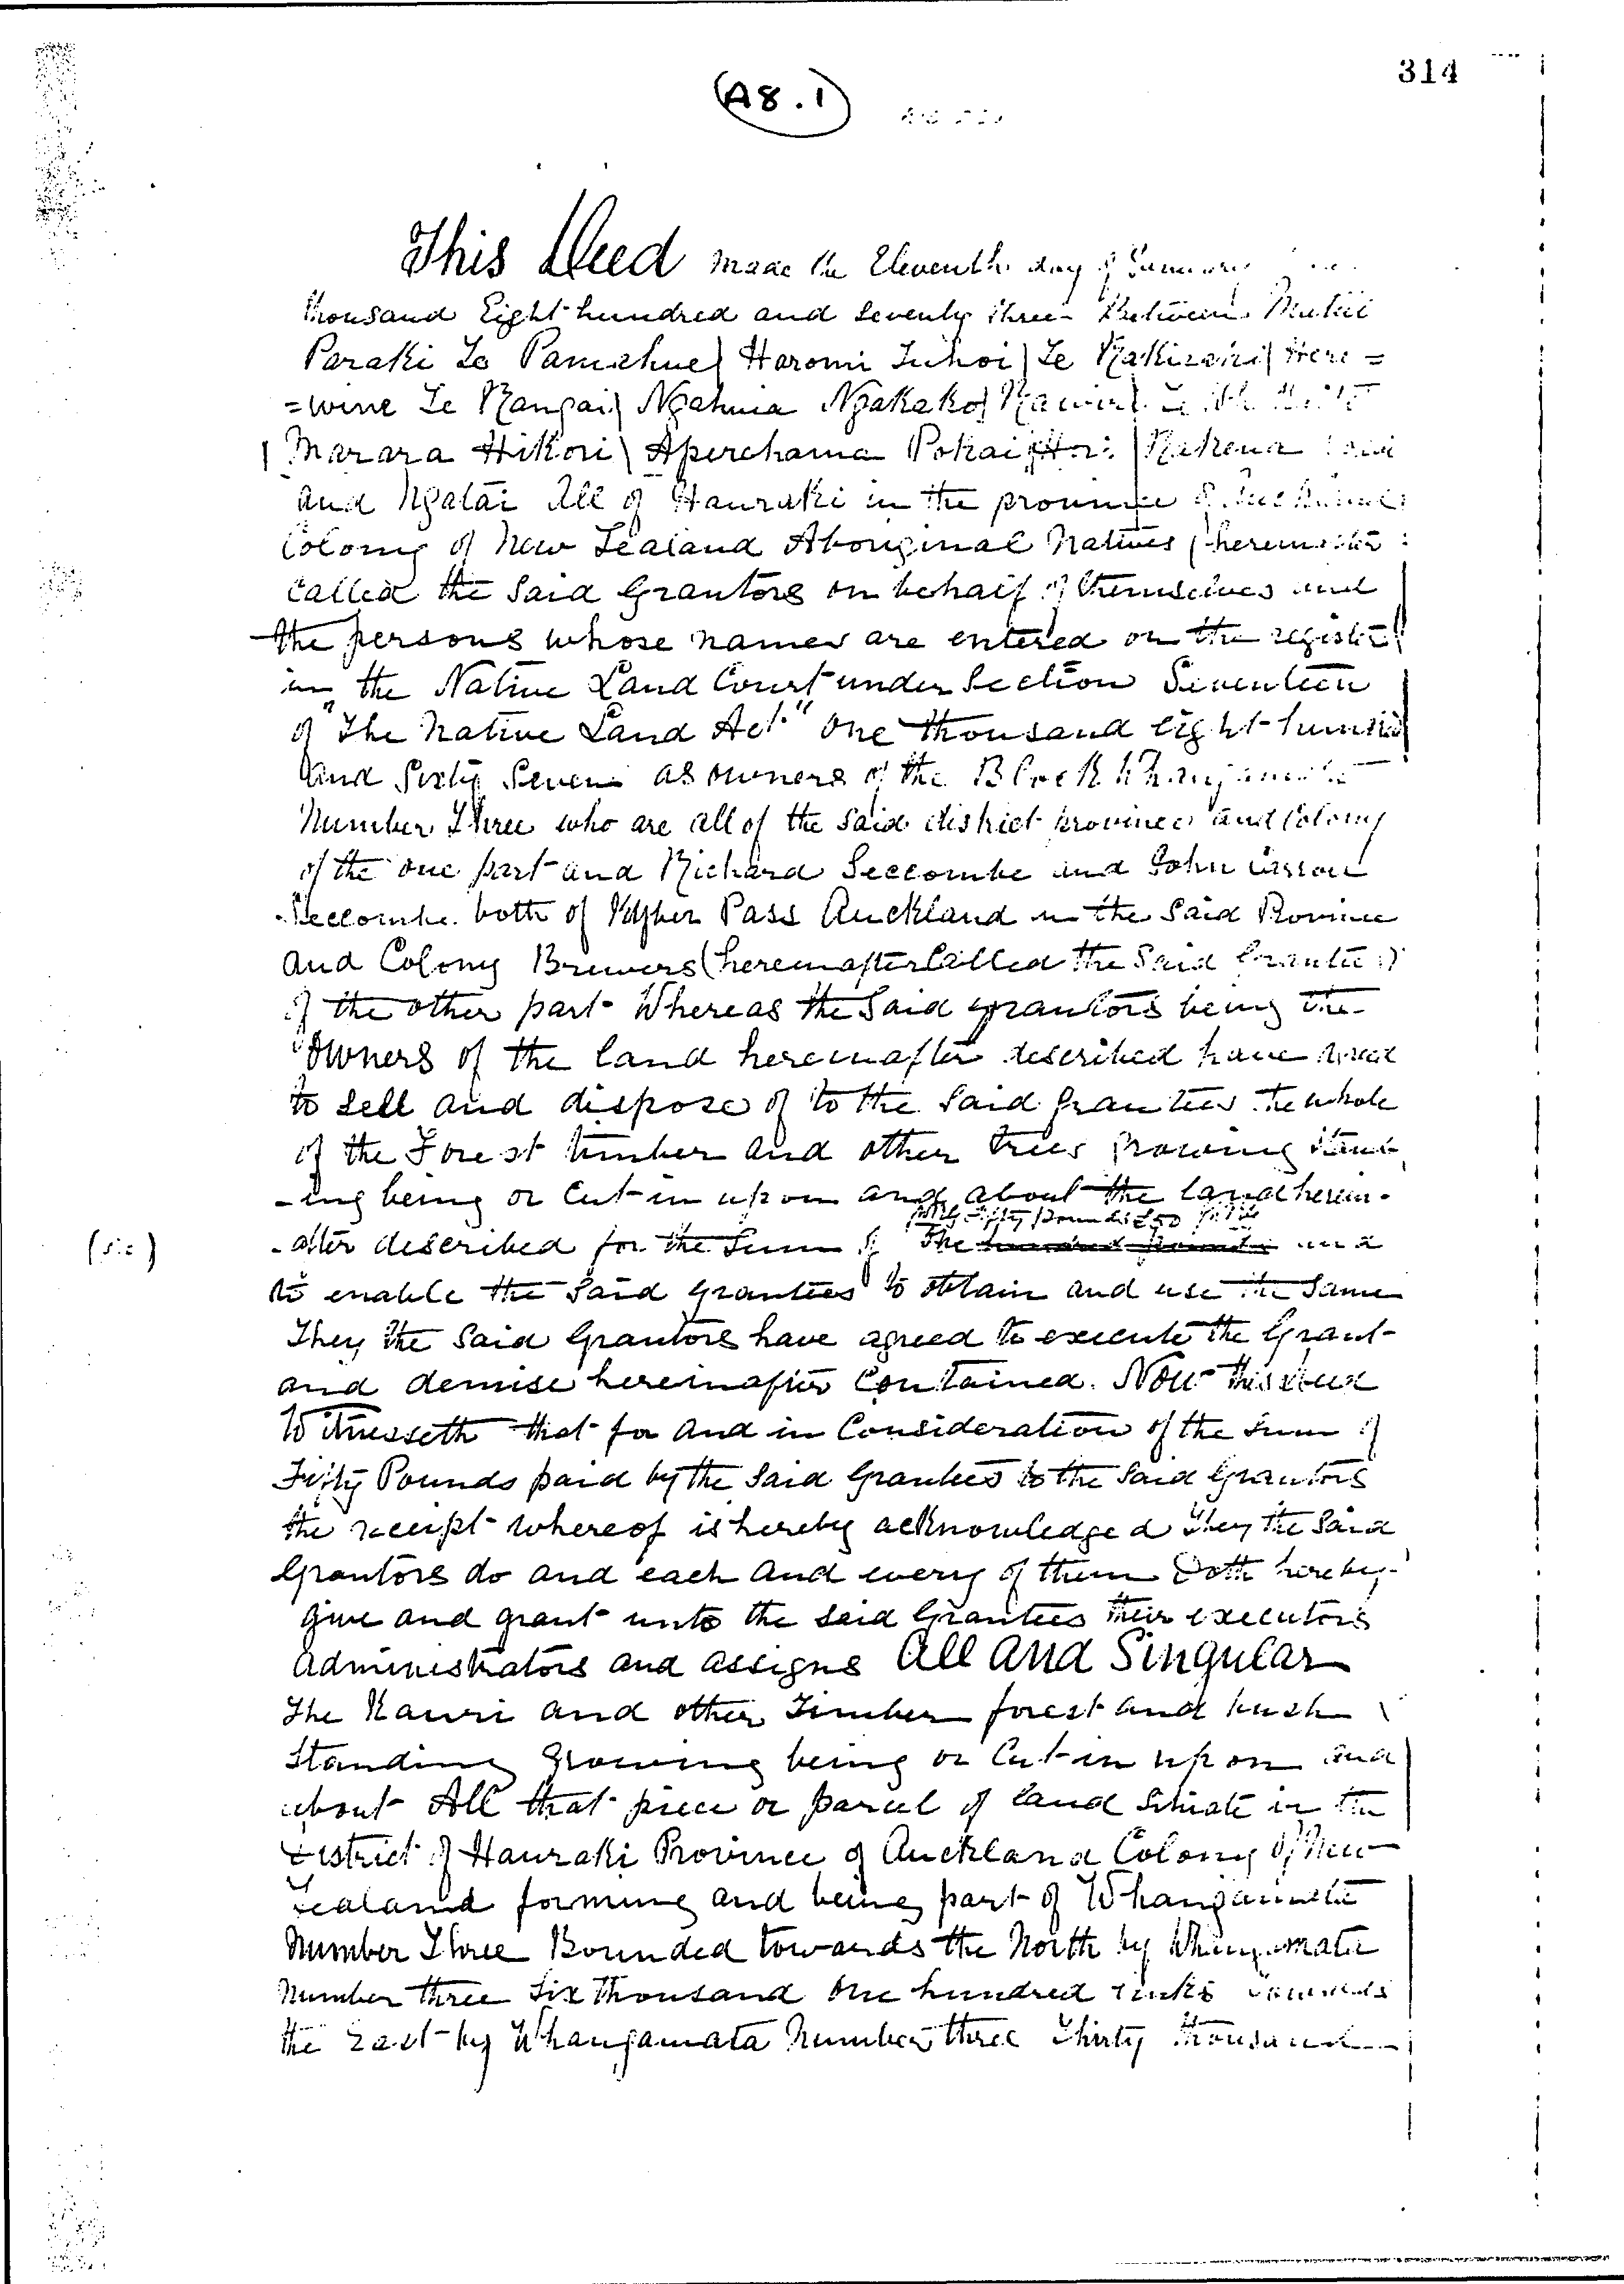 314
(A8.1)
This Deed made the Eleventh day of January
thousand Eight hundred and seventy three Between
Paraki Te Haromi Tuhoi Te
=wine Te Rangai Ngahuia Ngakako
Marara Hikori Aperahama Pokai Hori
and Ngatai All of Hauraki in the province of
Colony of New Zealand Aboriginal Natives (hereinafter
called the Said Grantors on behalf of themselves and
the persons whose names are entered on the register
in the Native Land Court under Section Seventeen
of "The Native Land Act" One thousand eight hundred
and Sixty Seven as owners of the Block Whangamata
Number Three who are all of the said district province and Colony
of the one part and Richard Seccombe and John
Seccombe both of Khyber Pass Auckland in the Said Province
and Colony Brewers (hereinafter Called the Said Grantees)
of the other part Whereas the Said grantors being the
Owners of the land hereinafter described have agreed
to sell and dispose of to the Said Grantees the whole
of the Forest timber and other trees growing stand-
-ing being or Cut in upon and about the land herein-
fifty pounds £50
(sic)
-after described for the Sum of The hundred pounds and
to enable the Said grantees to obtain and use the Same
They the Said Grantors have agreed to execute the Grant
and demise hereinafter Contained. Now this deed
Witnesseth that for and in Consideration of the sum of
Fifty Pounds paid by the Said Grantees to the Said Grantors
the receipt whereof is hereby acknowledged They the Said
Grantors do and each and every of them Doth hereby
give and grant unto the said Grantees their executors
administrators and assigns All And Singular
The Kauri and other Timber forest and bush
Standing Growing being or Cut in upon and
about All that piece or parcel of land Situate in the
District of Hauraki Province of Auckland Colony of New
Zealand forming and being part of Whangamata
Number Three Bounded towards the North by Whangamata
Number three Six Thousand One hundred links towards
the East by Whangamata Number three Thirty thousand